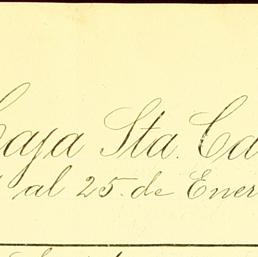 Caja Sta. Ca
al 25 de Ener